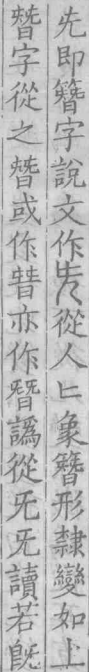 兂即簪字說文作從人匕象簪形隸變如上
朁字從之朁或作亦作譌從旡旡讀若旣